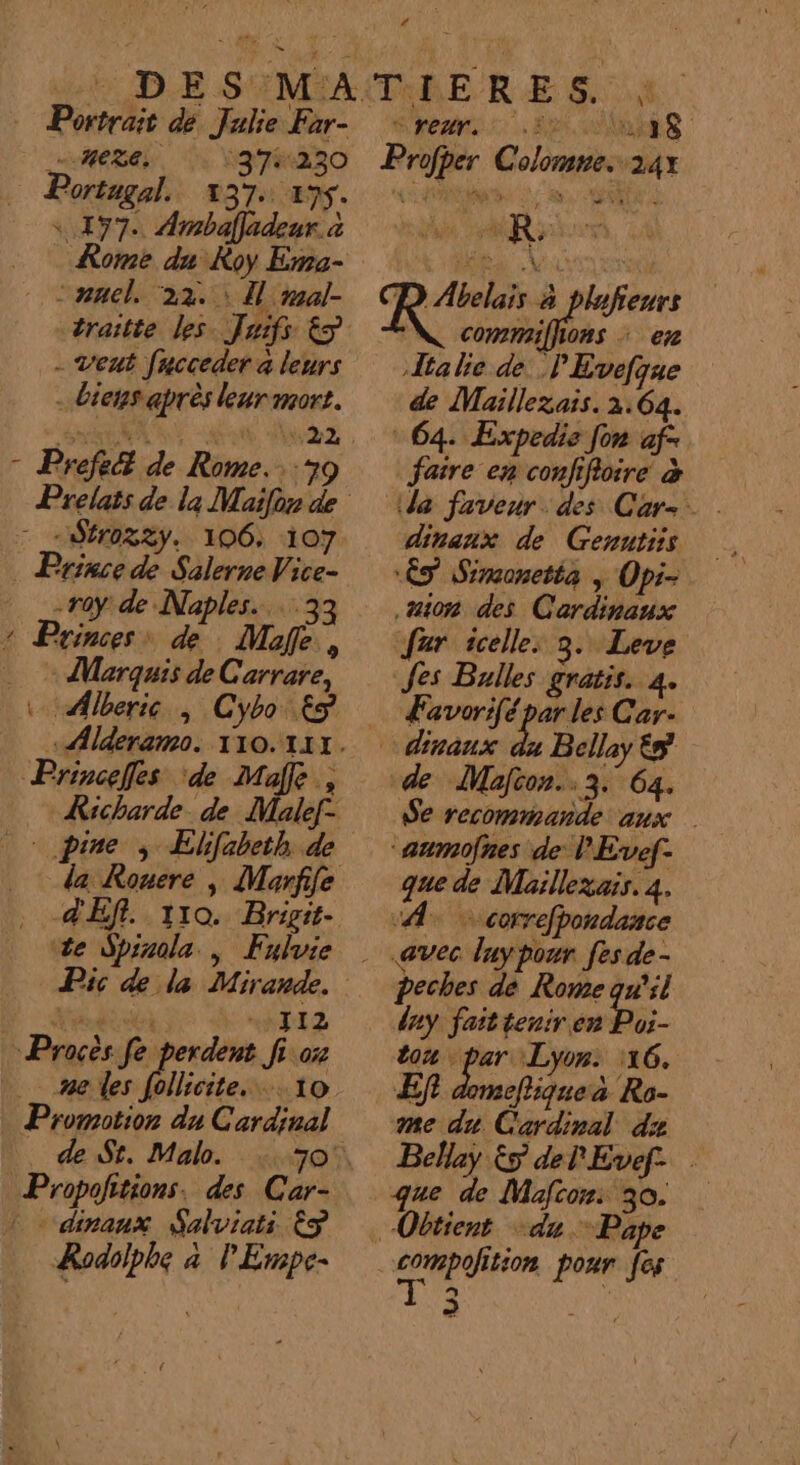 DES MATIERES.
Portrait de Julie Far-
neze. 37. 230
Portugal. 137. 175.
177. Ambaſſadeur à
Rome du Roy Ema-
nuel. 22. Il mal-
traitte les Juifs &
veut ſucceder à leurs
biens après leur mort.
22
Prefect de Rome. 79
Prelats de la Maiſon de
Strozzy. 106. 107
Prince de Salerne Vice-
roy de Naples. 33
Princes de Maſſe,
Marquis de Carrare,
Alberic, Cybo &
Alderamo. 110. 111.
Princeſſes de Maſſe,
Richarde de Maleſ-
pine, Eliſabeth de
la Rouere, Marfiſe
d'Eſt. 110. Brigit-
te Spinola, Fulvie
Pic de la Mirande.
112
Procès ſe perdent ſi on
ne les ſollicite. 10
Promotion du Cardinal
de St. Malo. 70
Propoſitions des Car-
dinaux Salviati &
Rodolphe à l'Empe-
reur. 18
Proſper Colomne. 241
R.
RAbelais à pluſieurs
commiſſions en
Italie de l'Eveſque
de Maillezais. 2. 64.
64. Expedie ſon af-
faire en conſiſtoire à
la faveur des Car-
dinaux de Genutiis
& Simonetta, Opi-
nion des Cardinaux
ſur icelle. 3. Leve
ſes Bulles gratis. 4.
Favoriſé par les Car-
dinaux du Bellay &
de Maſcon. 3. 64.
Se recommande aux
aumoſnes de l'Eveſ-
que de Maillezais. 4.
A correſpondance
avec luy pour ſes de-
peches de Rome qu'il
luy fait tenir en Poi-
tou par Lyon. 16.
Eſt domeſtique à Ro-
me du Cardinal du
Bellay & de l'Eveſ-
que de Maſcon. 30.
Obtient du Pape
compoſition pour ſes
T 3